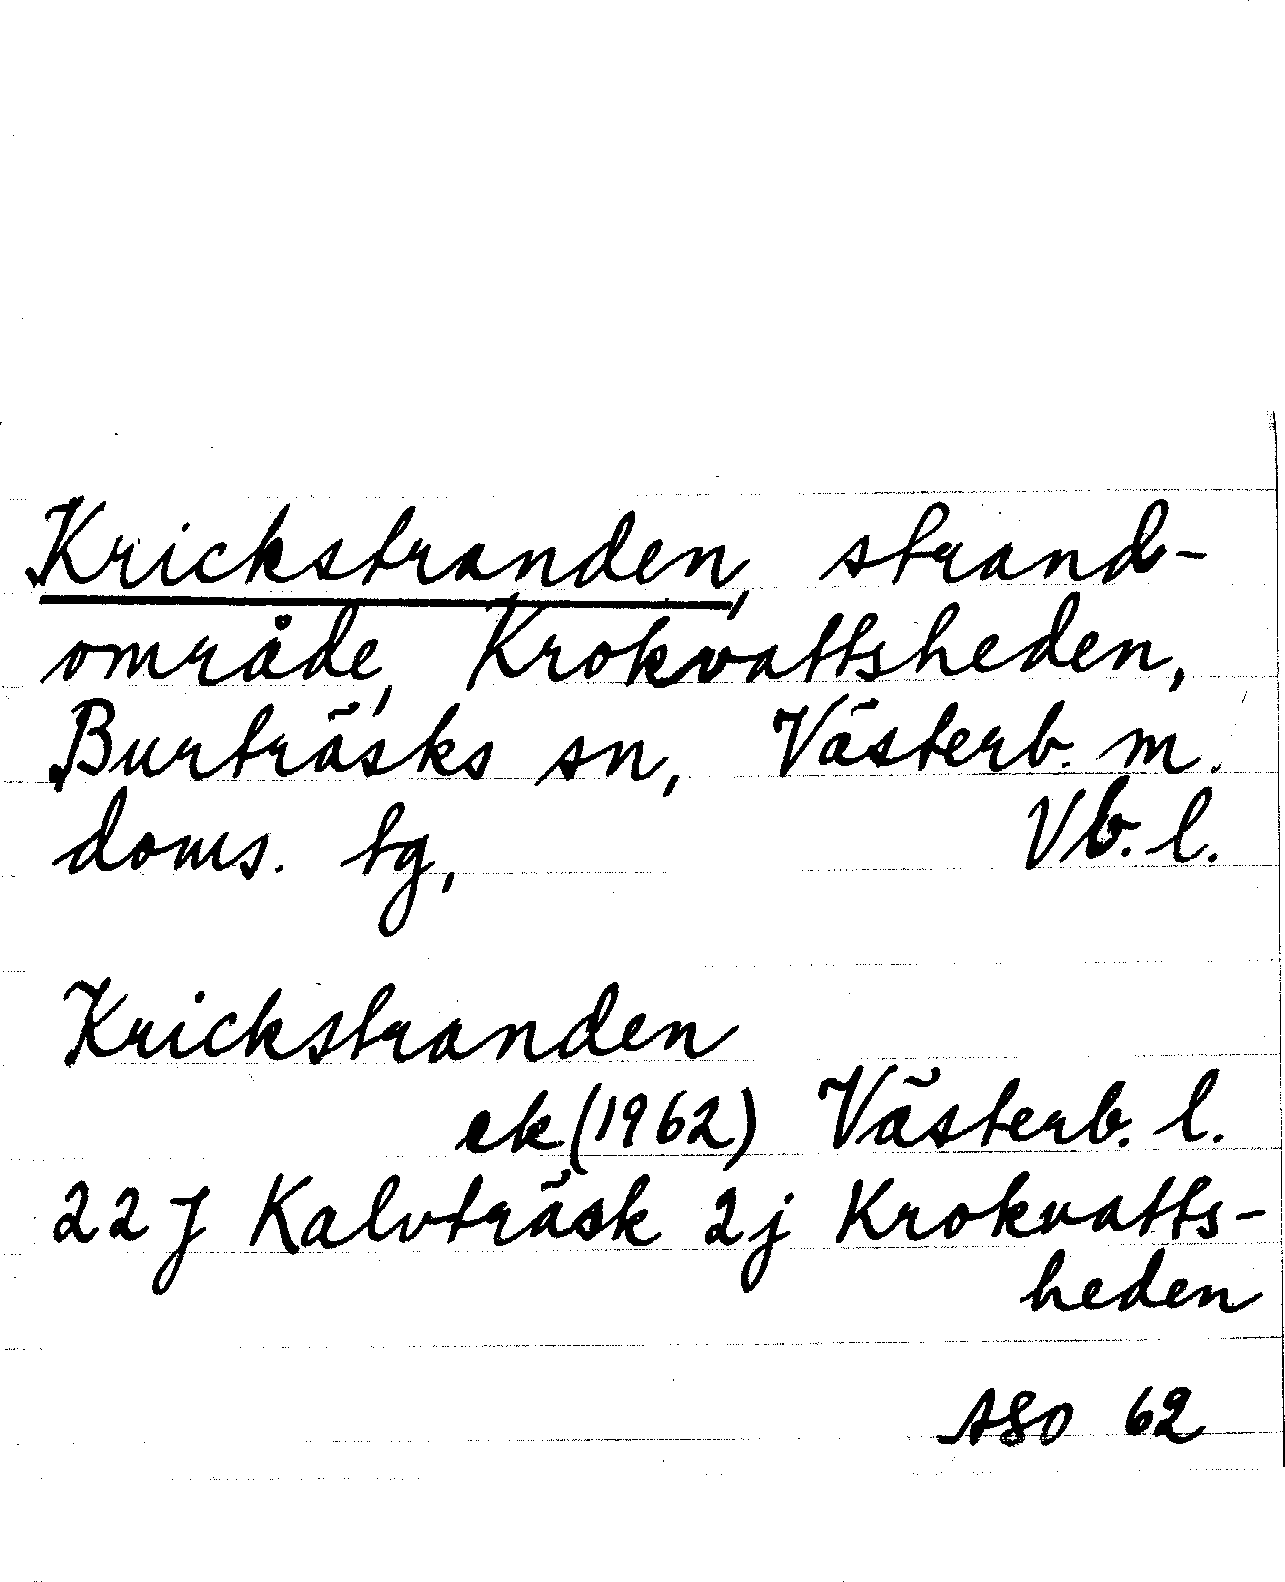 Krickstranden, strand-
område, Krokvattsheden,
Burträsks sn, Västerb. m.
doms. tg, Vb. l.
Krickstranden
ek (1962) Västerb. l.
22 J Kalvträsk 2j Krokvatts-
heden
ASO 62